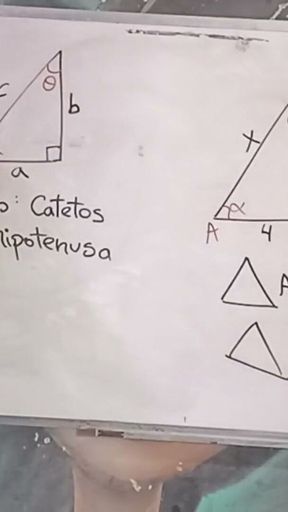 c
θ
b
a
: Catetos
hipotenusa
x
α
A
4
A